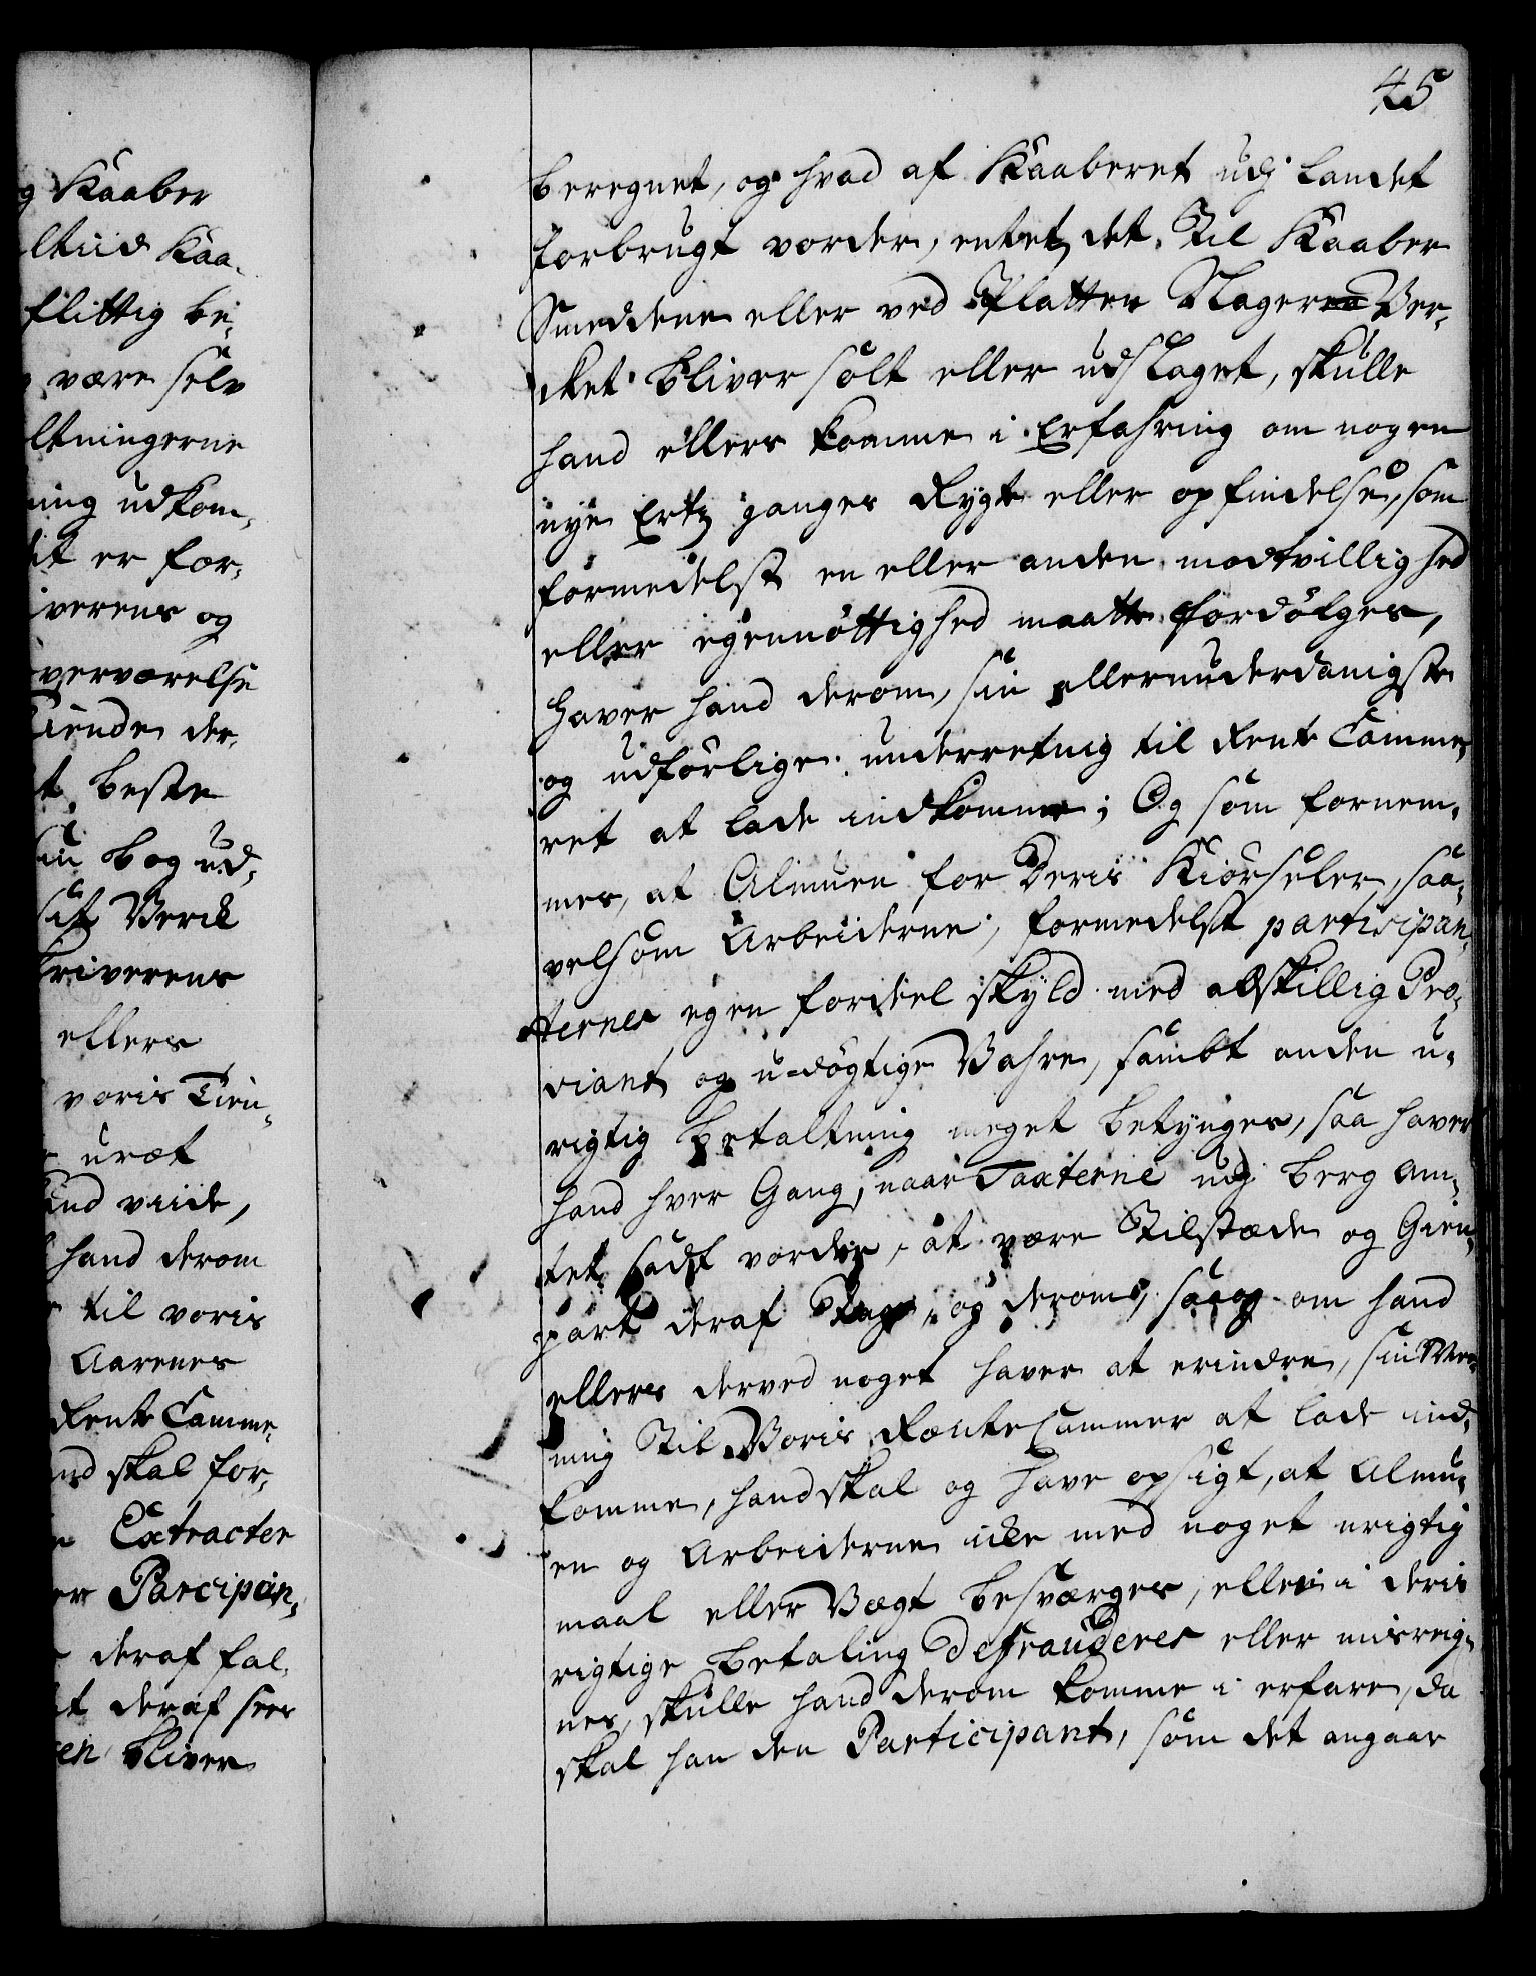 g Kaaber
ltiid Kaa-
flittig be-
være selv
ltningerne
ning udkom-
it er for-
iverens og
verværelse
Tiende der-
t beste
sin bog ud-
Verck
kriverens
ellers
voris Tien-
uræt
viide,
hand derom
til voris
Aarenes
Rente Camme-
nd skal for-
Extracter
er Parcipan-
deraf fal-
t deraf sees
en bliver
45
beregnet, og hvad af Kaaberet udj Landet
forbrugt vorder, entet det til Kaaber
Smeddene eller ved Platten Slageren Ver-
cket bliver solt eller udslaget, skulle
hand ellers komme i Erfahring om nogen
nye Ertz ganges Rygte eller opfindelse, som
formedelst en eller anden modtvillighed
eller egennøttighed maatte fordølges,
haver hand derom, sin allerunderdanigste
og udførlige underretnig til Rente Camme-
ret at lade indkomme; Og som fornem-
mes, at Almuen for Deris Kiørseler, saa-
velsom Arbeiderne, formedelst participan-
ternes egen fordeel skyld med adskillig Pro-
viant og u-døgtige Vahre, sambt anden u-
rigtig betaltning meget betynges, saa haver
hand hver Gang, naar Taxterne udj Berg Am-
tet sadt vorder, at være Tilstæde og Gien-
part deraf Tage, og derom, saa og om hand
ellers derved noget haver at erindre, sin Mee-
ning Til Voris RenteCammer at lade ind-
komme, hand skal og have opsigt, at Almu-
en og Arbeiderne icke med noget urigtig
maal eller Vægt besværges, eller i deris
rigtige betaling Defrauderes eller misreig-
nes, skulle hand derom komme i erfare, da
skal han den Participant, som det angaar